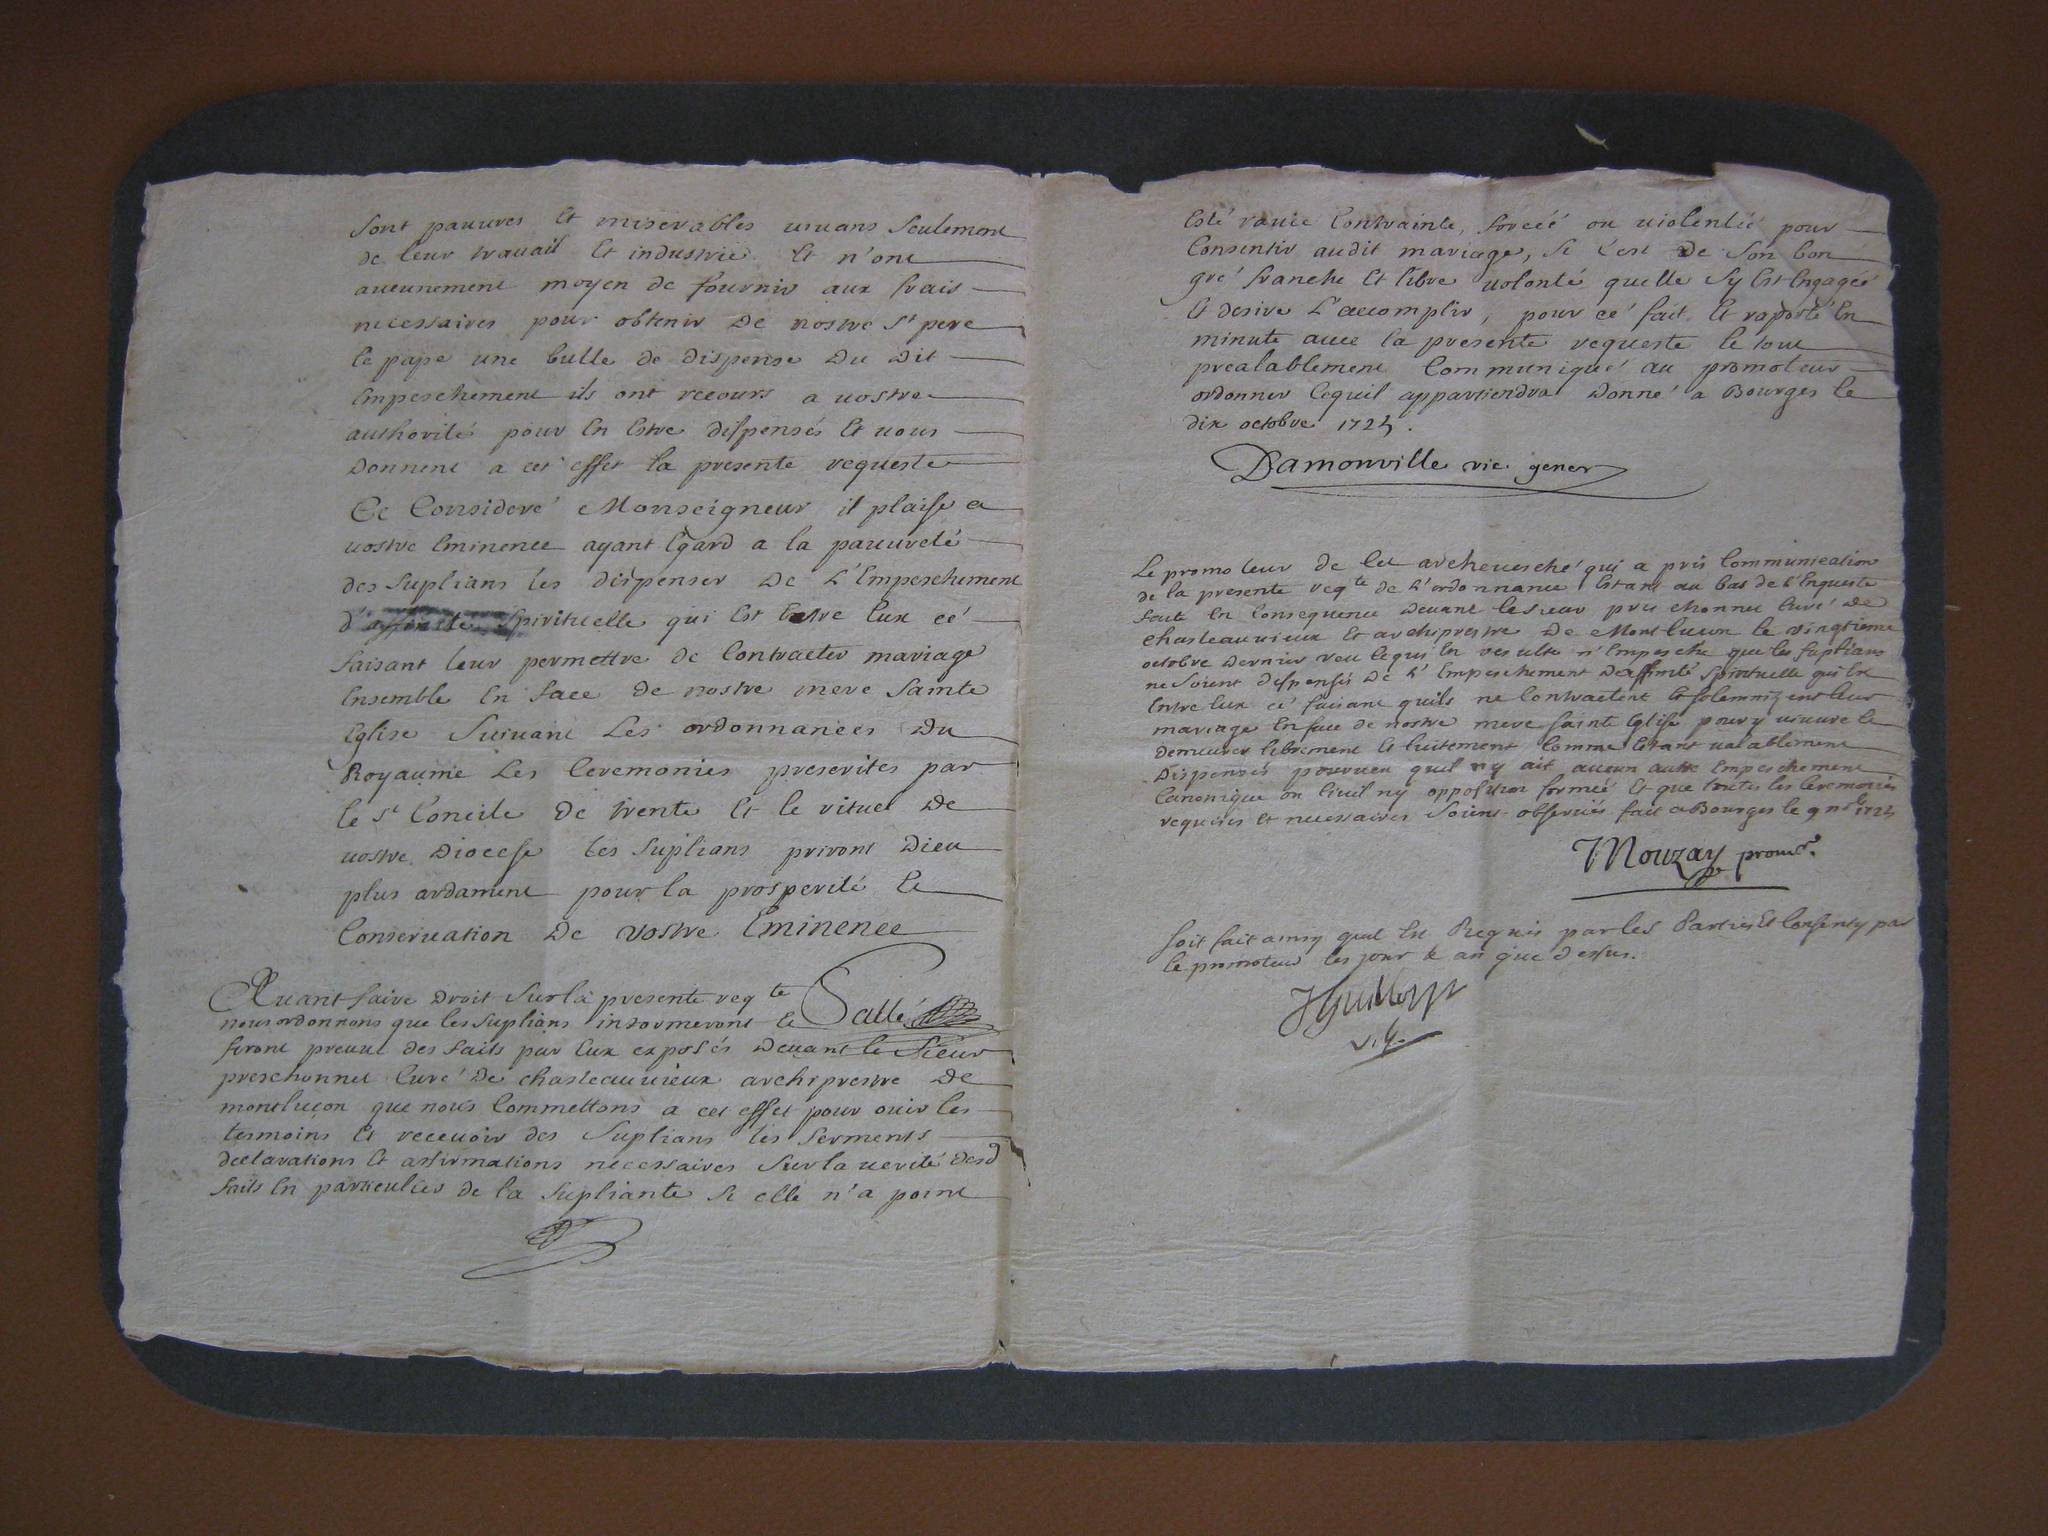 sont pauures et miserables uiuans seulement
de leur trauail et industrie et n'ont
aucunement moyen de fournir aux frais
necessaires pour obtenir de nostre St pere
le pape une bulle de dispense du dit
Empeschement ils ont recours a uostre
authorité pour en estre dispensés et uous
donnent a cet effet la presente requeste
Ce Consideré Monseigneur il plaise a
uostre Eminence ayant Egard a la pauureté
des suplians les dispenser de L'Empeschement
d'affinité spirituelle qui est Entre Eux cé
faisant leur permettre de Contracter mariage
Ensemble En face de nostre mere sainte
Eglise suiuant Les ordonnances du
Royaume Les Ceremonies prescrites par
le St Concile de trente et le rituel de
uostre Diocese les suplians priront Dieu
plus ardament pour la prosperité et
Conseruation de vostre Eminence
Sallé
Auant faire droit sur la presente reqte
nous ordonnons que les suplians informeront et
feront preuue des faits par Eux exposés deuant le sieur
preschonnet Curé de chasteauuieux archiprestre de
montluçon que nous Commettons a cet effet pour ouir les
tesmoins et receuoir des suplians les serments
declarations et affirmations necessaires sur la uerité desd
faits En particulier de la supliante si elle n'a point
Esté rauie Contrainte, forcéé ou uiolentéé pour
Consentir audit mariage, si c'est de son bon
gré franche et libre uolonté quelle sy est Engagéé
et desire L'accomplir, pour cé fait et raporté En
minute auec la presente requeste le tout
prealablement Communiqué au promoteur
ordonner cequil appartiendra donné a Bourges le
dix octobre 1724.
Damonville vic gener
Le promoteur de cet archeuesché qui a pris Communication
de la presente reqte de L'ordonnance Estant au bas de l'Enqueste
faite En Consequence deuant le sieur preschonnet Curé de
chasteauuieux et archiprestre de Montlucon le vingtieme
octobre dernier veu cequi En resulte n'Empesche que les suplians
ne soient dispensés de L'Empeschement d'affinité spirituelle qui Est
Entre Eux cé faisant quils ne Contractent et solemnizent leur
mariage En face de nostre mere sainte Eglise pour y uiuure et
demeurer librement et licitement Comme Estant ualablement
dispensés pourueu quil ny ait aucun autre Empeschement
Canonique ou Ciuil ny opposition forméé et que toutes les Ceremonies
requises et necessaires soient obseruéés fait a Bourges le 9 nobre 1724
Mouzay promr.
soit fait ainsy quil Est Requis par les Parties Et Consenty par
le promoteur les jour & an que dessus.
v. g.